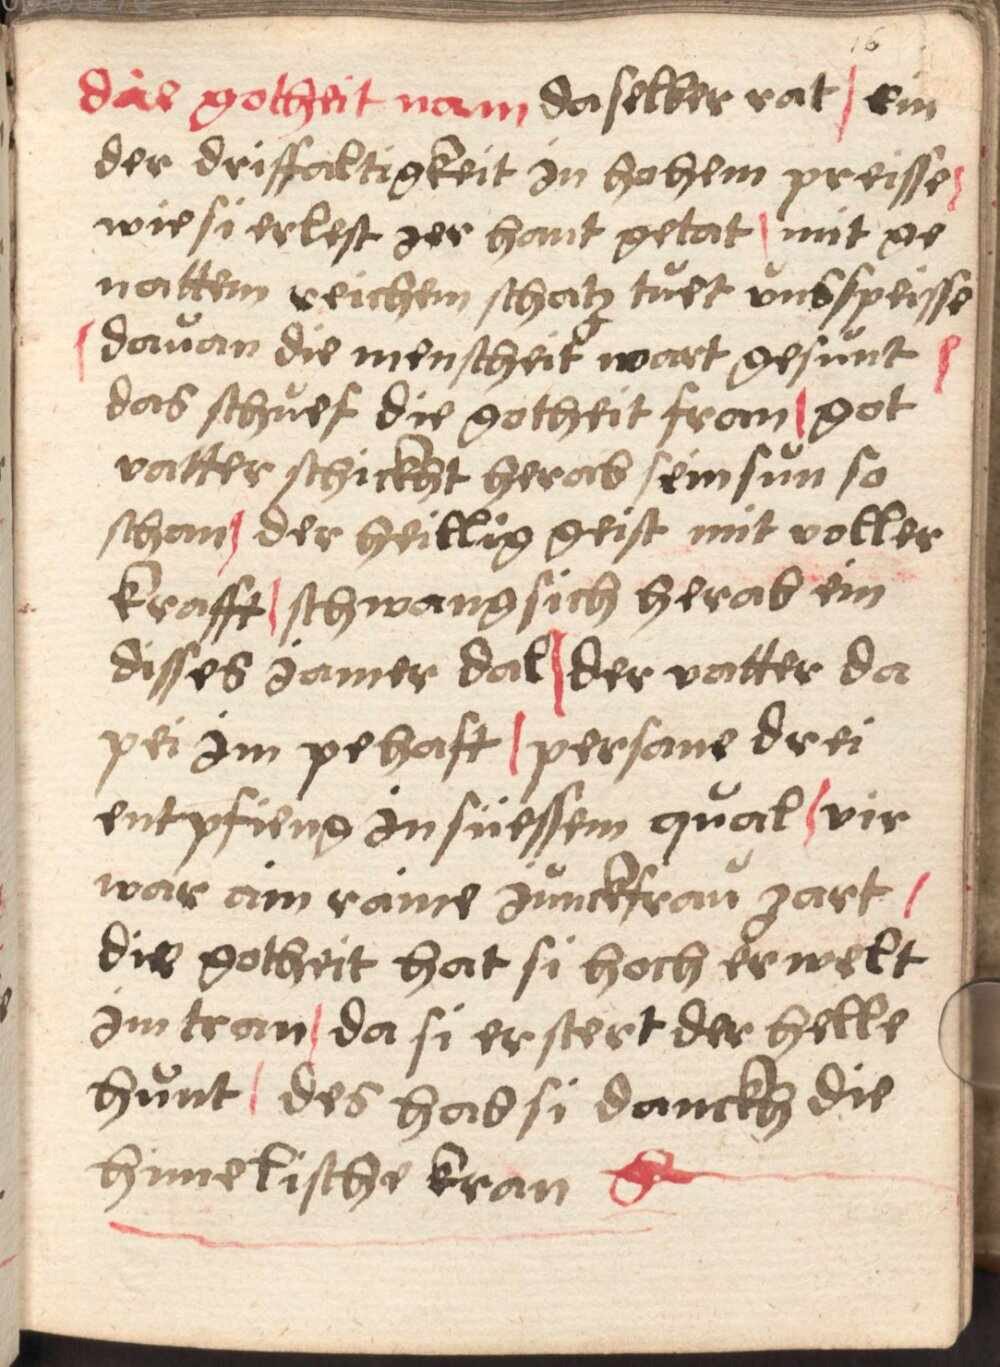 16
die gotheit nam da selber rat / ein
der driffaltigkeit in hohem preisse /
wie si erlest zer hant getat / mit ge
nattem reichem schatz tuet uns speisse
/ davan die menscheit wart gesunt /
das schuef die gotheit fran / got
vatter schickht herab sein sun so
schan / der heillig geist mit voller
krafft / schwang sich herab ein
disses jamer dal / der vatter da
pei im pehaft / persane drei
entpfieng in süessem qual / vir
war ain raine junckfrau zart /
die gotheit hat si hoch erwelt
im tran / da si erstert der helle
hunt / des hab si danckh die
himelische kran